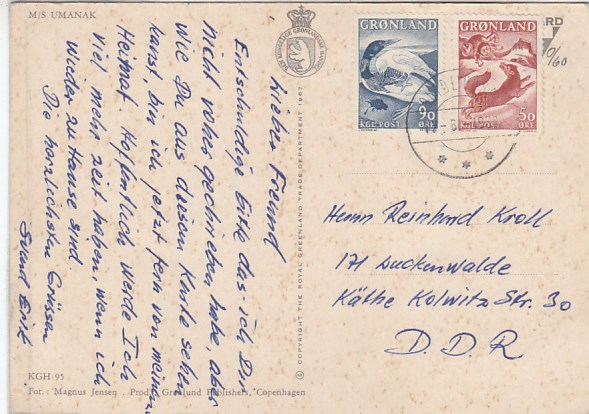 M/S UMANAK
Lieber Freund
Entschuldige bitte das ich Dir
nicht vohes geschrieben habe, aber
wie Du aus diesem Karte sehen
kanst, bin ich jetzt fern von meinen
Heimat Hoffentlich werde Ich
viel mehr zeit haben, wenn ich
wieder zu Hause sind
Die herzlichsten Grüssen
Svend Erik
KGH 95
Fot.: Magnus Jensen . Prod.: Grønlund Publishers, Copenhagen
DEN KONGELIGE GRØNLANDSKE HANDEL
© COPYRIGHT THE ROYAL GREENLAND TRADE DEPARTMENT 1967
GRØNLAND
90
KGL POST ØRE
GRØNLAND
50
KGL POST ØRE
Herrn Reinhard Kroll
171 Luckenwalde
Käthe Kolwitz Str. 30
D. D. R